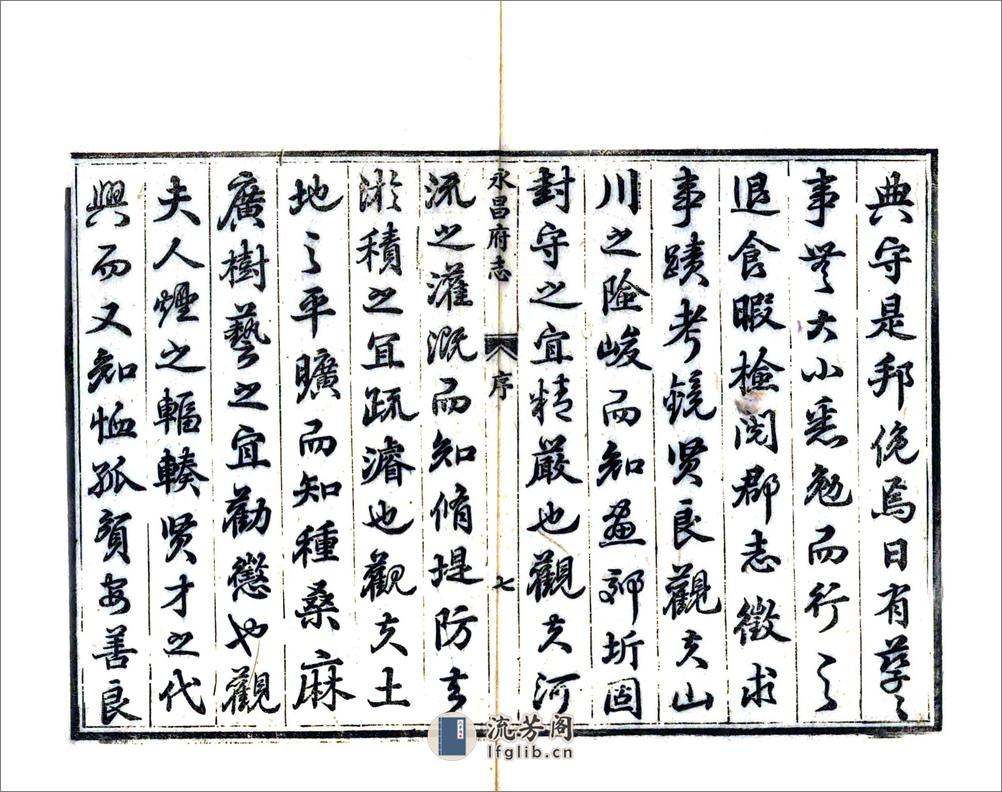 典守是邦俛焉日有孳〻
事無大小悉勉而行之
退食暇檢閱郡志徵求
事蹟考鏡贤良觀夫山
川之險峻而知畫郊圻固
封守之宜精嚴也觀夫河
永昌府志 序 七
流之灌溉而知脩堤防去
淤積之宜疏濬也觀夫土
地之平曠而知種桑麻
廣樹藝之宜勸懲也觀
夫人煙之輻輳贤才之代
興而又知恤孤貧安善良
流芳阁
lfglib.cn